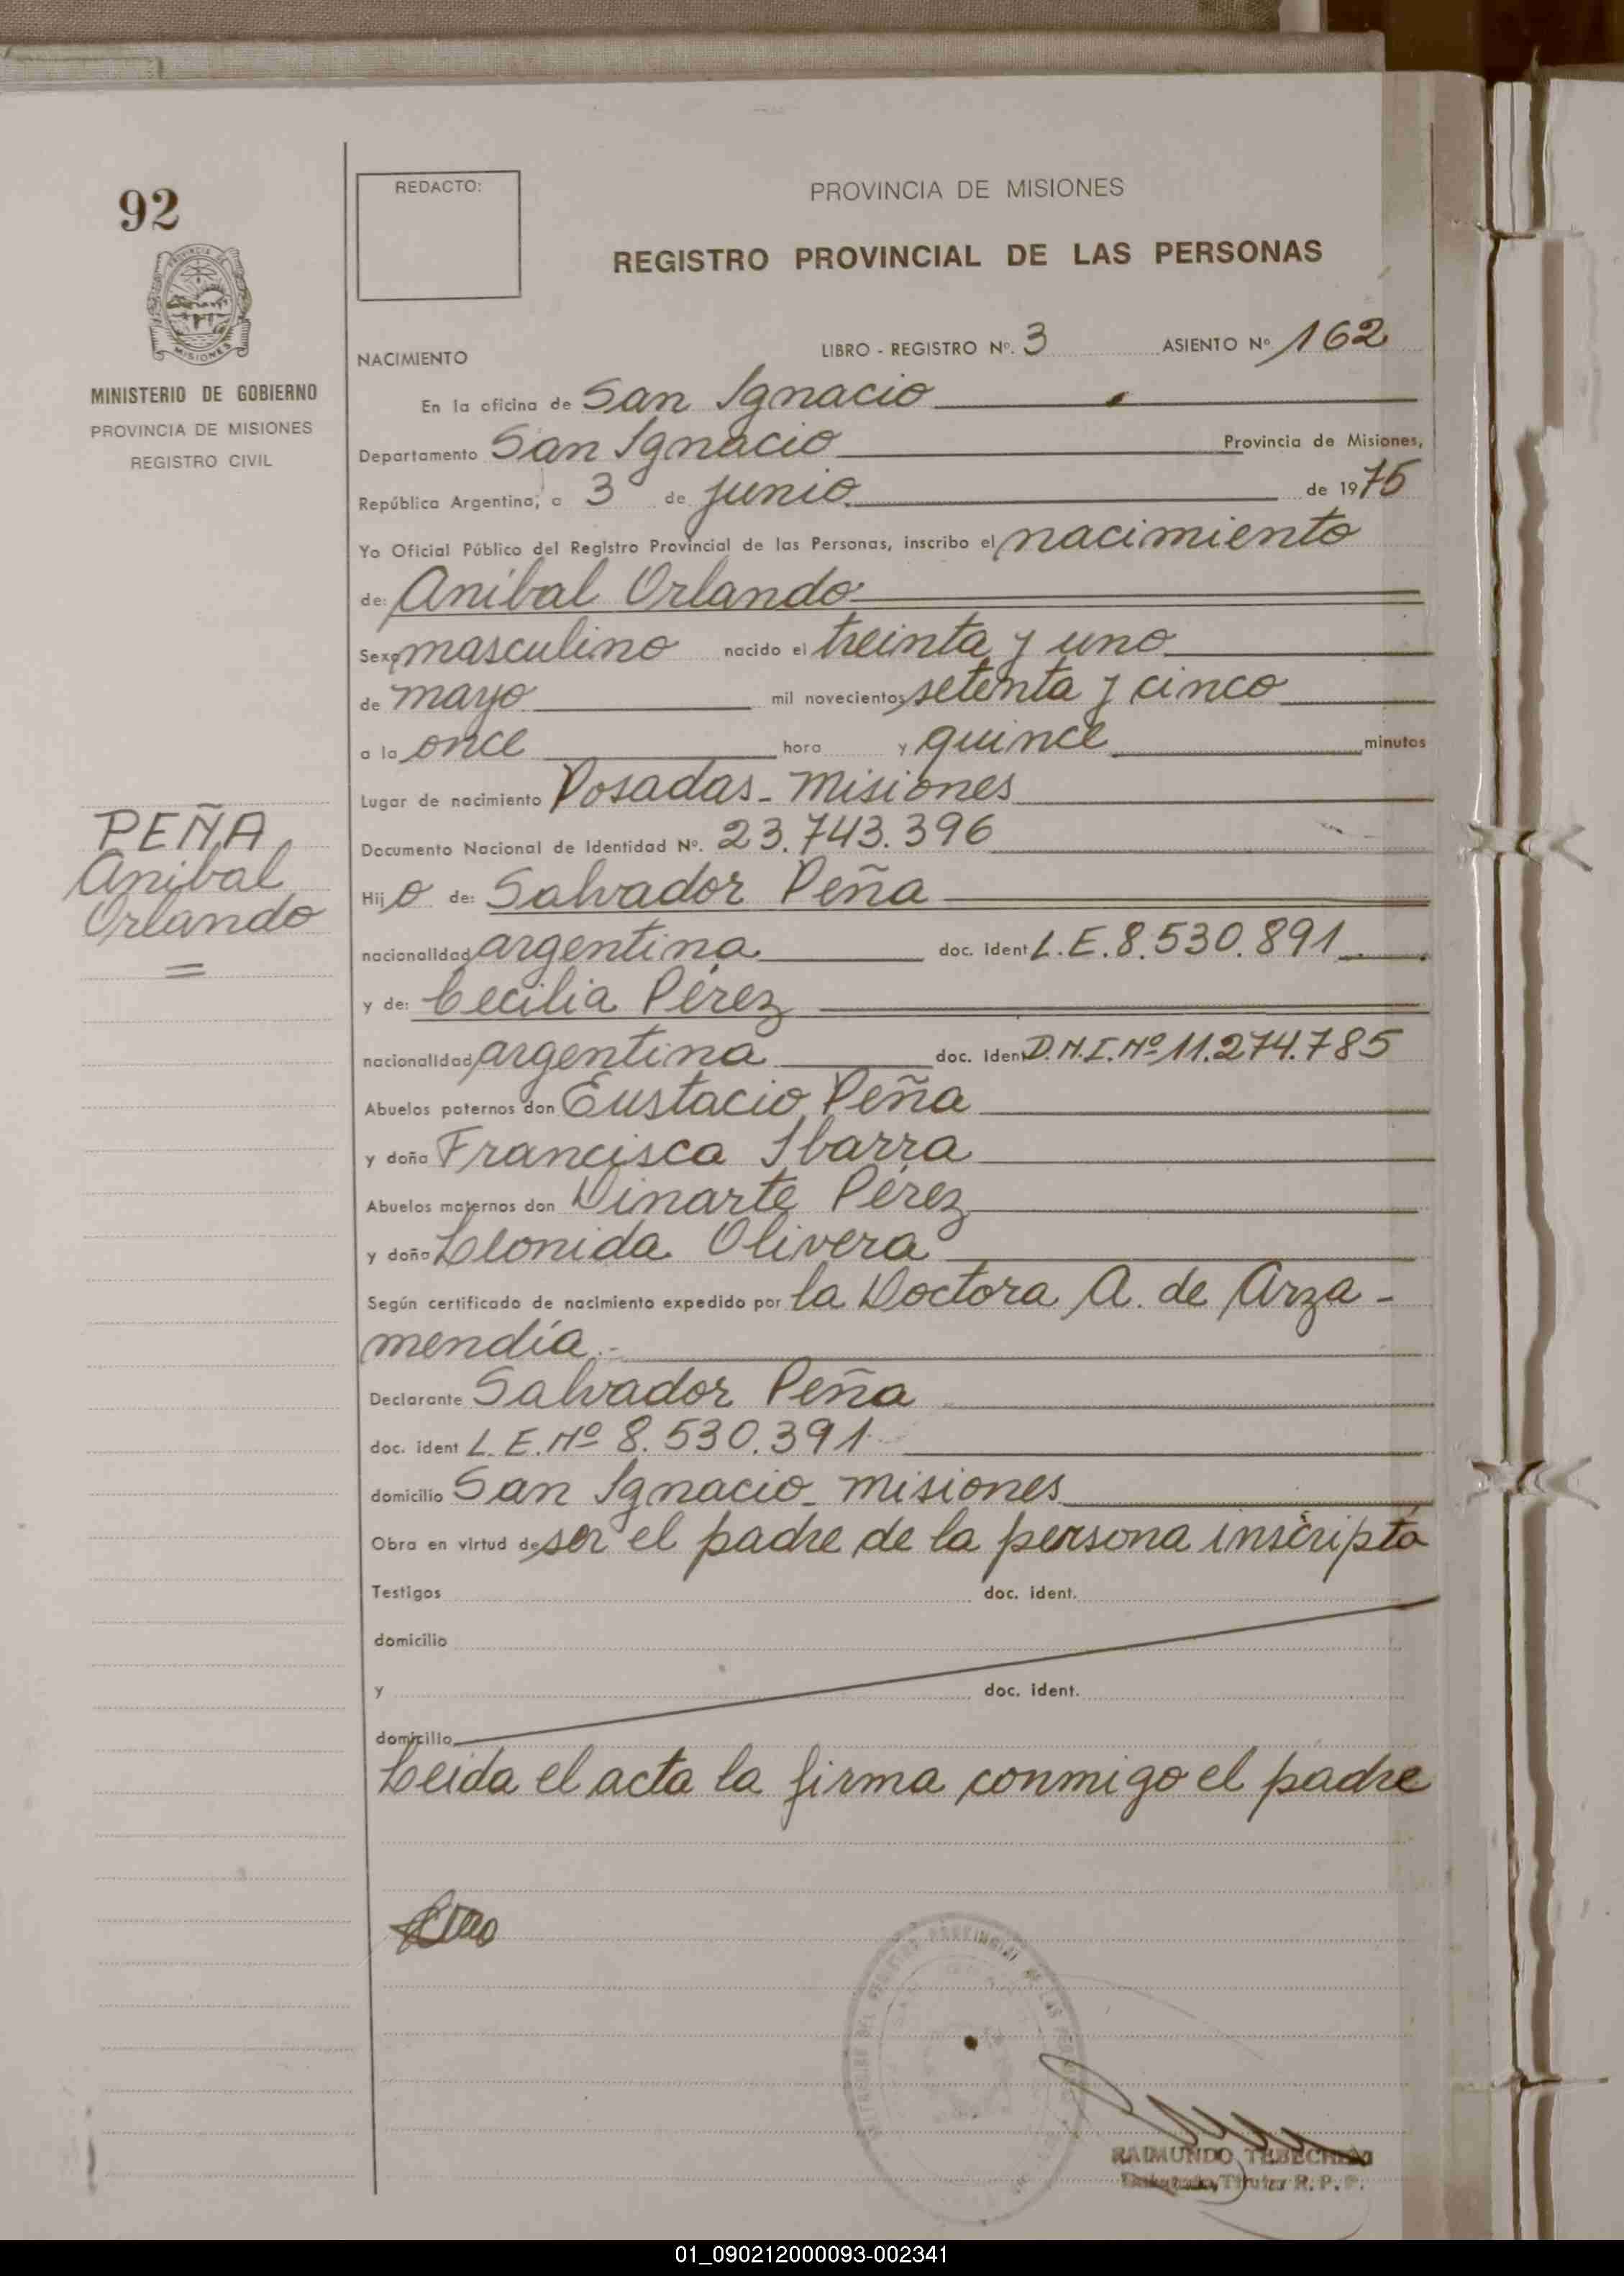 92
REDACTO:
PROVINCIA DE MISIONES
REGISTRO PROVINCIAL DE LAS PERSONAS
MISIONES
MINISTERIO DE GOBIERNO
PROVINCIA DE MISIONES
REGISTRO CIVIL
NACIMIENTO LIBRO - REGISTRO Nº. 3 ASIENTO Nº 162
En la oficina de San Ignacio
Departamento San Ignacio Provincia de Misiones,
República Argentina, a 3 de junio de 1975
Yo Oficial Público del Registro Provincial de las Personas, inscribo el nacimiento
de: Anibal Orlando
Sexo masculino nacido el treinta y uno
de mayo mil novecientos setenta y cinco
a la once hora y quince minutos
Lugar de nacimiento Posadas - Misiones
Documento Nacional de Identidad Nº. 23.743.396
PEÑA
Anibal
Orlando
Hijo de: Salvador Peña
nacionalidad argentina doc. ident L.E. 8.530.891
y de: Cecilia Pérez
nacionalidad argentina doc. ident D.N.I. Nº 11.274.785
Abuelos paternos don Eustacio Peña
y doña Francisca Ibarra
Abuelos maternos don Dinarte Pérez
y doña Leonida Olivera
Según certificado de nacimiento expedido por la Doctora A. de Arza-
mendía.-
Declarante Salvador Peña
doc. ident L.E. Nº 8.530.391
domicilio San Ignacio - Misiones
Obra en virtud de ser el padre de la persona inscripta
Testigos doc. ident.
domicilio
y doc. ident.
domicilio
Leida el acta la firma conmigo el padre
RAIMUNDO
Titular R. P. P.
01_090212000093-002341